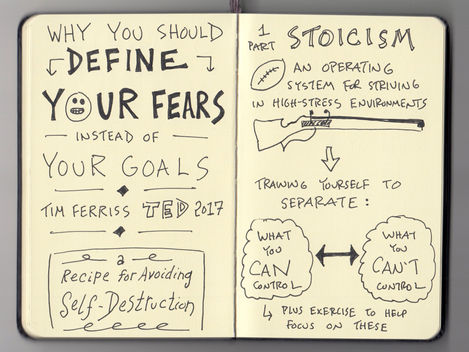 WHY YOU SHOULD
DEFINE
YOUR FEARS
INSTEAD OF
YOUR GOALS
TIM FERRISS TED 2017
a
Recipe for Avoiding
Self-Destruction
1
PART STOICISM
AN OPERATING
SYSTEM FOR STRIVING
IN HIGH-STRESS ENVIRONMENTS
TRAINING YOURSELF TO
SEPARATE:
WHAT
YOU
CAN
CONTROL
WHAT
YOU
CAN'T
CONTROL
PLUS EXERCISE TO HELP
FOCUS ON THESE